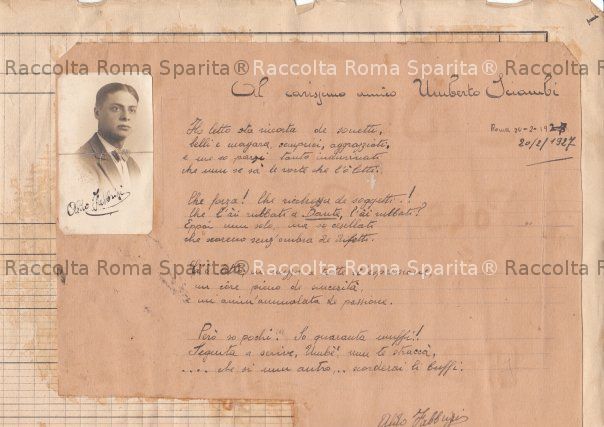 Raccolta Roma Sparita® Raccolta Roma Sparita® Raccolta Roma Sparita®
1
Al carissimo amico Umberto Sciambi
Roma 20-2-1927
20/2/1927
Aldo Fabbrizi
Ho letto sta ricorta de sonetti,
belli e magara, comprici, aggrazziati,
e me so parzi tanto indovinati
che nun se sà le vorte che l'ò letti.
Che forza! Che ricchezza de soggetti..!
Che l'ài rubbati a Dante, l'ài rubbati?
Eppoi nun solo, ma so cesellati
che sorteno senz'ombra de difetti.
Raccolta Roma Sparita® Raccolta Roma Sparita® Raccolta Roma Sparita®
un còre pieno de sincerità
e un anim'ammalata de passione.
Però so pochi!! So quaranta muffi!
Seguita a scrive, Umbè, nun te straccà,
.... che si nun antro... scorderai li buffi.
Aldo Fabbrizi
Raccolta Roma Sparita® Raccolta Roma Sparita® Raccolta Roma Sparita®